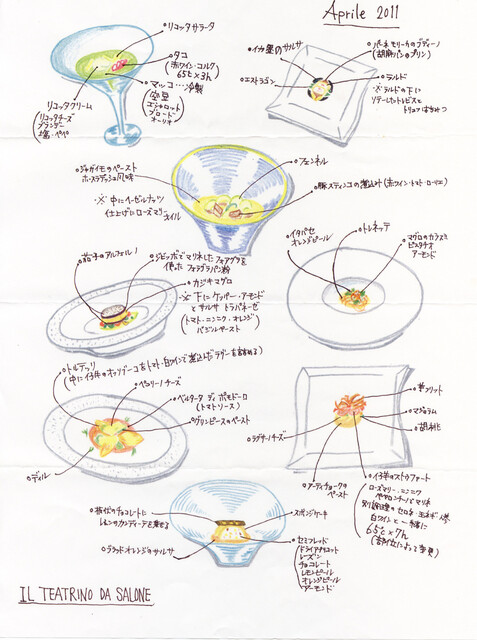 Aprile 2011
リコッタサラータ
タコ
(赤ワイン・コルク
65℃×3h)
マッコ…冷製
空豆
エシャロット
ブロード
オーリオ
リコッタクリーム
リコッタチーズ
塩・ペペ
イカ墨のサルサ
パーネ モリーカのブディーノ
(胡麻パンのプリン)
エストラゴン
ラルド
※ラルドの下に
トリュフはちみつ
ジャガイモのペースト
ホースラディッシュ風味
※中にヘーゼルナッツ
仕上げにローズマリー
オイル
フェンネル
豚スティンコの煮込み(赤ワイン・トマト・ローリエ)
イタパセ
オレンジピール
トレネッテ
マグロのカラスミ
ピスタチオ
アーモンド
茄子のアルフォルノ
ジビッボでマリネしたフォアグラを
使ったフォアグラパン粉
カジキマグロ
※下にケッパー・アーモンド
とサルサ トラパネーゼ
(トマト・ニンニク・オレンジ
バジルペースト)
トルテッリ
(中に仔牛のオッソブーコをトマト・白ワインで煮込んだラグーを詰める)
ペコリーノチーズ
ベルタータ ディ ポモドーロ
(トマトソース)
グリンピースのペースト
ディル
芽フリット
マジョラム
胡桃
ラグザーノチーズ
アーティチョークの
ペースト
仔羊のストゥファート
ローズマリー・ニンニク
でマリネ
白ワインと一緒に
65℃×7h
板状のチョコレートに
レモンのカンディードを乗せる
スポンジケーキ
ブラッドオレンジのサルサ
セミフレッド
ドライアプリコット
レーズン
チョコレート
レモンピール
オレンジピール
アーモンド
IL TEATRINO DA SALONE